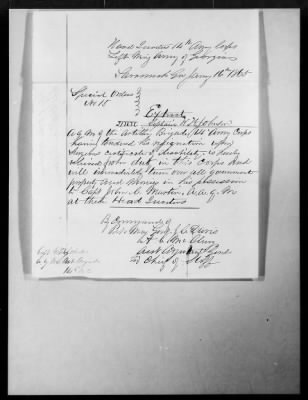 Head Quarters 14th Army Corps
Left Wing Army of Georgia
Savannah Ga Jany 16th 1865
Special Orders
No 15
Extract
Captain
A.Q.M of the Artillery Brigade, 14 Army Corps
having tendered his resignation upon
Surgeons certificate of disability is hereby
relieved from duty in this Corps and
will immediately turn over all government
property and money in his possession
to Capt John C. Martin, A.A.Q.M
at these Head Quarters
By Command of
Bvt Maj Genl J C Davis
A. C. McClurg
Asst Adjutant Genl
& Chief of Staff
Capt
A.Q.M Art Brigade
14 A.C.